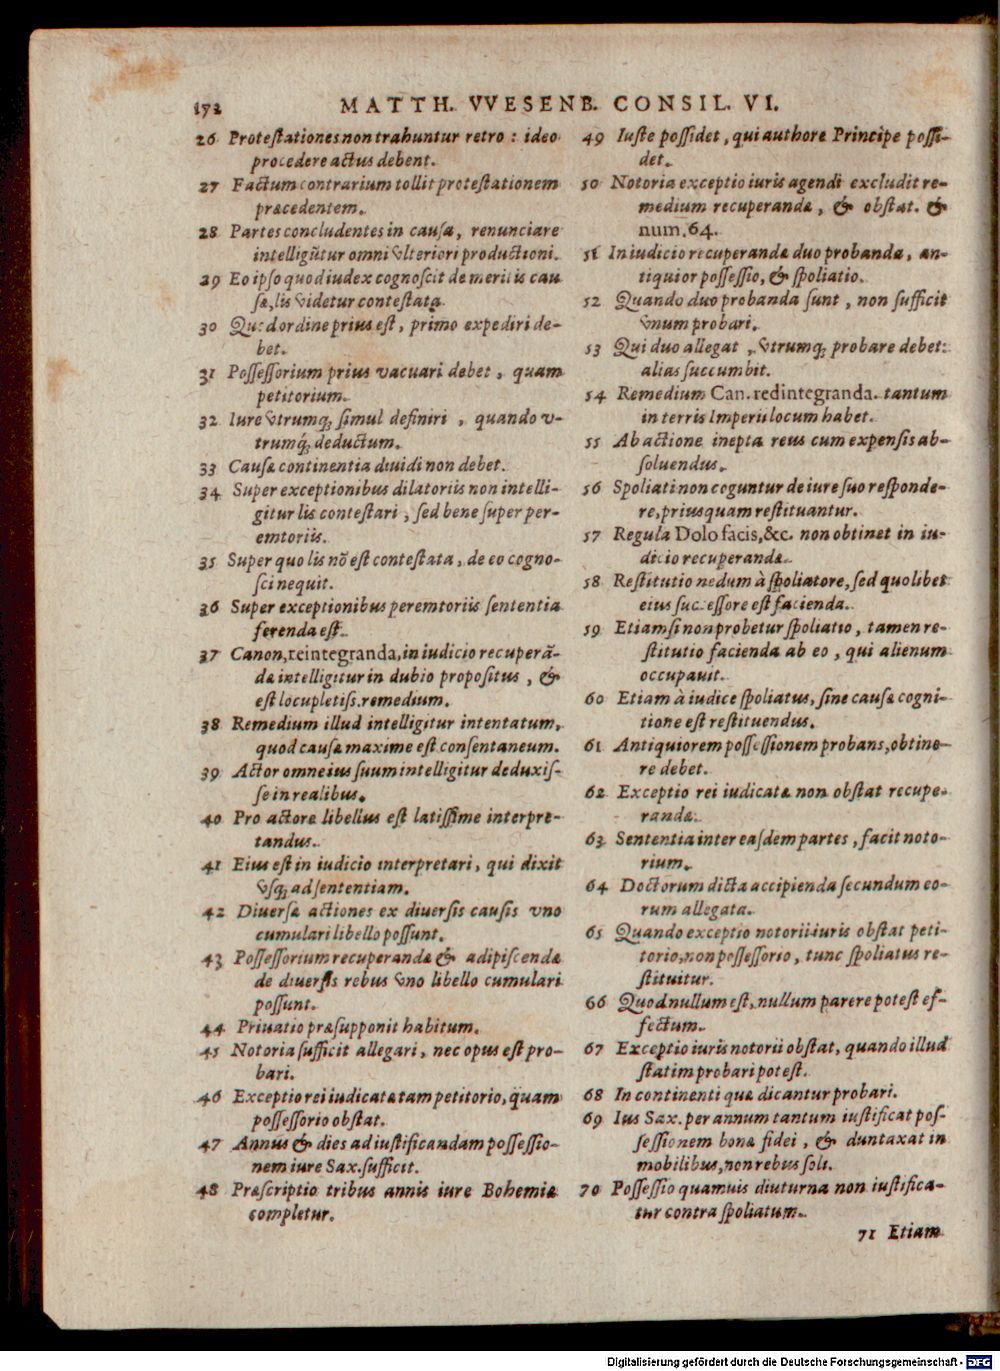 172 MATTH. VVESENB. CONSIL. VI.
26 Protestationes non trahuntur retro : ideo
procedere actus debent.
27 Factum contrarium tollit protestationem
præcedentem.
28 Partes concludentes in causa, renunciare
intelligũtur omni vlteriori productioni.
29 Eo ipso quod iudex cognoscit de meritis cau
sæ, lis videtur contestata.
30 Quod ordine prius est, primo expediri de-
bet.
31 Possessorium prius vacuari debet, quam
petitorium.
32 Iure vtrumq́; simul definiri, quando v-
trumq́; deductum.
33 Causæ continentia diuidi non debet.
34 Super exceptionibus dilatoriis non intelli-
gitur lis contestari, sed bene super per-
emtoriis.
35 Super quo lis nõ est contestata, de eo cogno-
sci nequit.
36 Super exceptionibus peremtoriis sententia
ferenda est.
37 Canon, reintegranda, in iudicio recuperã-
dæ intelligitur in dubio propositus, &
est locupletiss. remedium.
38 Remedium illud intelligitur intentatum,
quod causæ maxime est consentaneum.
39 Actor omne ius suum intelligitur deduxis-
se in realibus.
40 Pro actore libellus est latissime interpre-
tandus.
41 Eius est in iudicio interpretari, qui dixit
vsq; ad sententiam.
42 Diuersæ actiones ex diuersis causis vno
cumulari libello possunt.
43 Possessorium recuperandæ & adipiscendæ
de diuersis rebus vno libello cumulari
possunt.
44 Priuatio præsupponit habitum.
45 Notoria sufficit allegari, nec opus est pro-
bari.
46 Exceptio rei iudicatæ tam petitorio, quam
possessorio obstat.
47 Annus & dies ad iustificandam possessio-
nem iure Sax. sufficit.
48 Præscriptio tribus annis iure Bohemiæ
completur.
49 Iuste possidet, qui authore Principe possi-
det.
50 Notoria exceptio iuris agendi excludit re-
medium recuperandæ, & obstat. &
num. 64.
51 In iudicio recuperandæ duo probanda, an-
tiquior possessio, & spoliatio.
52 Quando duo probanda sunt, non sufficit
vnum probari.
53 Qui duo allegat, vtrumq; probare debet:
alias succumbit.
54 Remedium Can. redintegranda. tantum
in terris Imperii locum habet.
55 Ab actione inepta reus cum expensis ab-
soluendus.
56 Spoliati non coguntur de iure suo responde-
re, priusquam restituantur.
57 Regula Dolo facis, &c. non obtinet in iu-
dicio recuperandæ.
58 Restitutio nedum à spoliatore, sed quolibet
eius successore est facienda.
59 Etiamsi non probetur spoliatio, tamen re-
stitutio facienda ab eo, qui alienum
occupauit.
60 Etiam à iudice spoliatus, sine causæ cogni-
tione est restituendus.
61 Antiquiorem possessionem probans, obtine-
re debet.
62 Exceptio rei iudicatæ non obstat recupe-
randæ.
63 Sententia inter easdem partes, facit noto-
rium.
64 Doctorum dicta accipienda secundum eo-
rum allegata.
65 Quando exceptio notorii iuris obstat peti-
torio, non possessorio, tunc spoliatus re-
stituitur.
66 Quod nullum est, nullum parere potest ef-
fectum.
67 Exceptio iuris notorii obstat, quando illud
statim probari potest.
68 In continenti quæ dicantur probari.
69 Ius Sax. per annum tantum iustificat pos-
sessionem bonæ fidei, & duntaxat in
mobilibus, non rebus soli.
70 Possessio quamuis diuturna non iustifica-
tur contra spoliatum.
71 Etiam
Digitalisierung gefördert durch die Deutsche Forschungsgemeinschaft - DFG